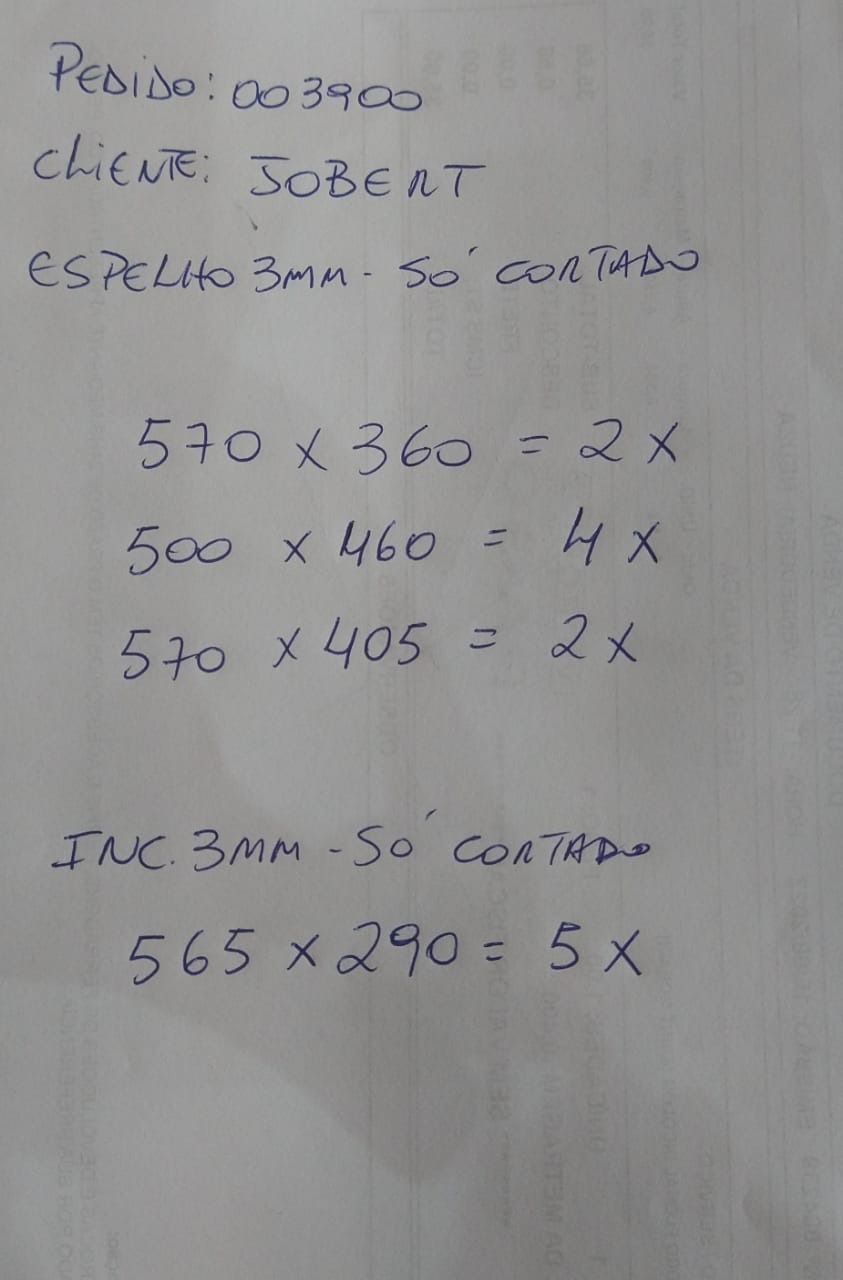 PEDIDO: 003900
CLIENTE: JOBERT
ESPELHO 3MM - SÓ CORTADO
570 X 360 = 2 X
500 X 460 = 4 X
570 X 405 = 2 X
INC. 3MM - SÓ CORTADO
565 X 290 = 5 X